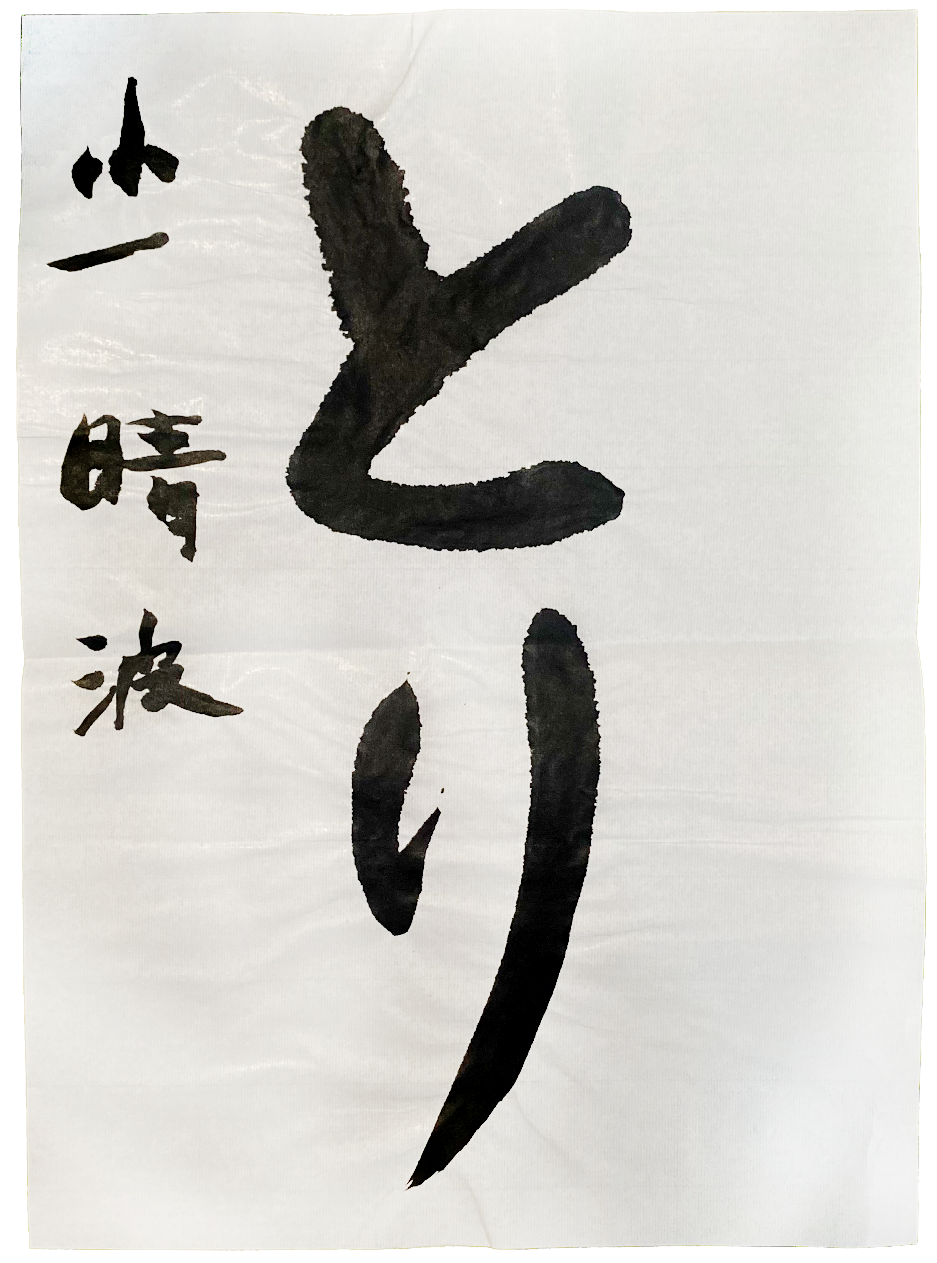 とり
小一 晴波